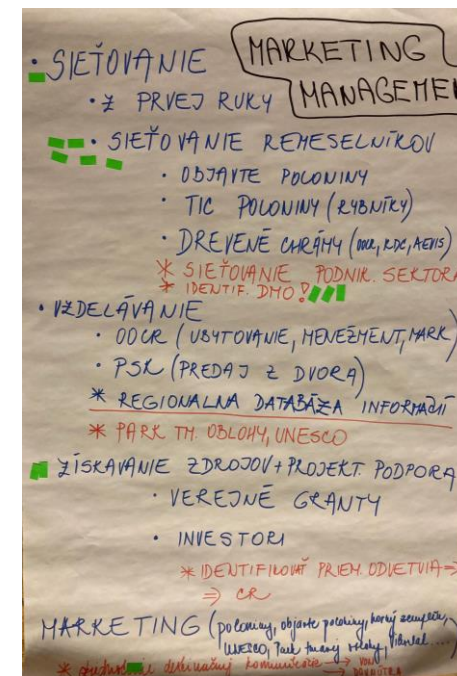 MARKETING
MANAGEMEN
• SIEŤOVANIE
• Z PRVEJ RUKY
• SIEŤOVANIE REMESELNÍKOV
• OBJAVTE POLONINY
• TIC POLONINY (RYBNÍKY)
• DREVENÉ CHRÁMY (OOCR, KDC, AEVIS)
* SIEŤOVANIE PODNIK. SEKTORA
* IDENTIF. DMO!
• VZDELÁVANIE
• OOCR (UBYTOVANIE, MENEŽMENT, MARK)
• PSK (PREDAJ Z DVORA)
* REGIONALNA DATABÁZA INFORMÁCIÍ
* PARK TM. OBLOHY, UNESCO
ZÍSKAVANIE ZDROJOV + PROJEKT. PODPORA
• VEREJNÉ GRANTY
• INVESTORI
* IDENTIFIKOVAŤ PRIEM. ODVETVIA =>
=> CR
MARKETING (poloniny, objavte poloniny, horný zemplín,
UNESCO, Park tmavej oblohy, ....)
* komunikácie → VON
→ DOVNÚTRA